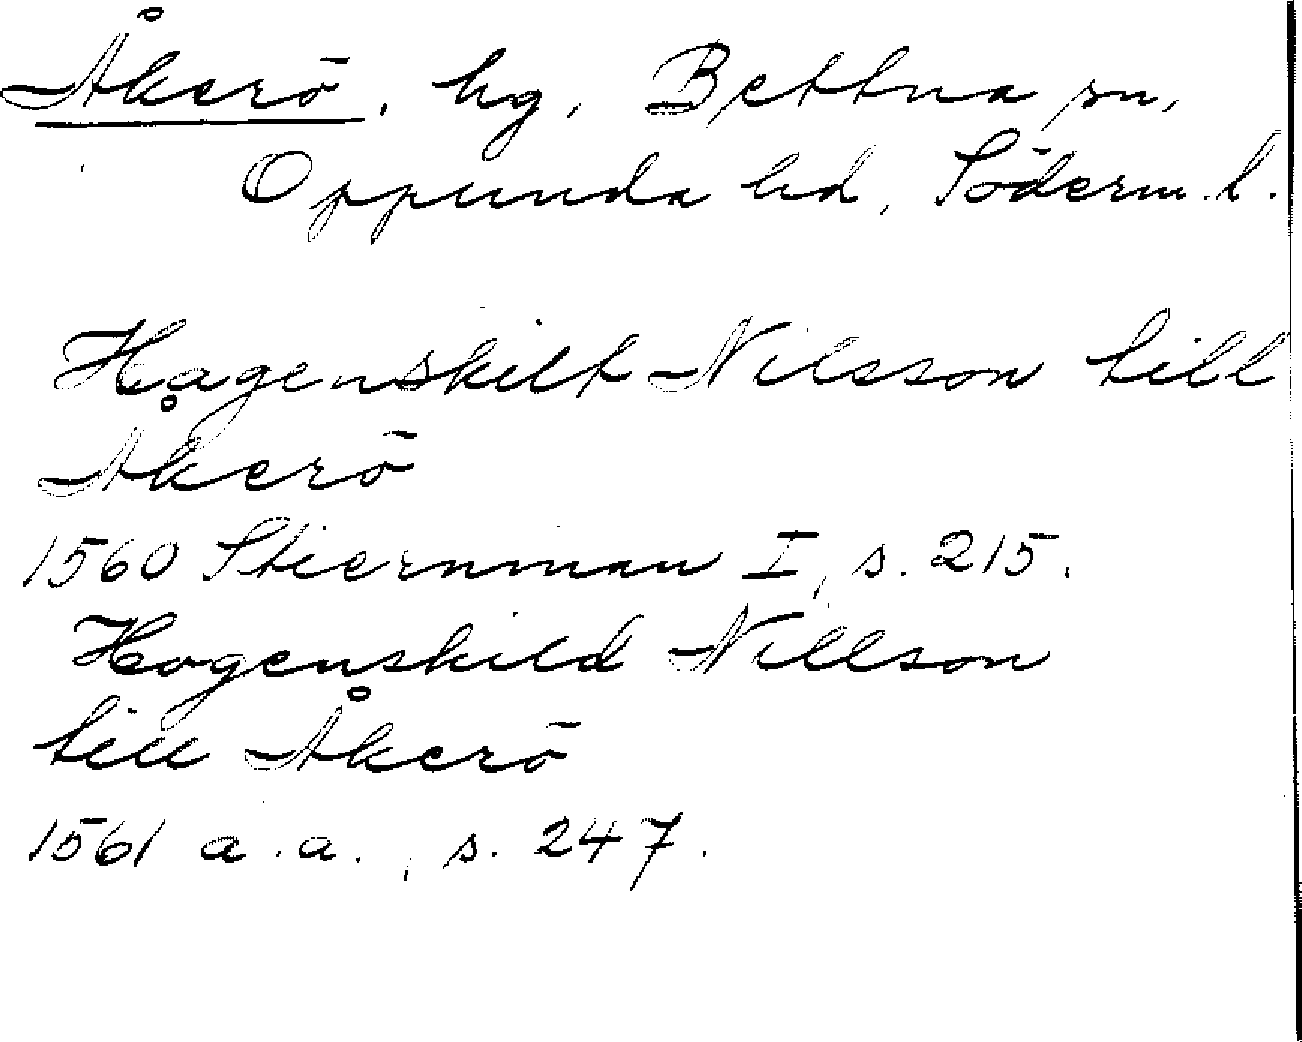 Åkerö, hg, Bettna sn,
Oppunda hd, Söderm. l.
Hagenskilt Nilsson till
Åkerö
1560 Stiernman I, s. 215.
Hogenskild Nillson
till Åkerö
1561 a.a., s. 247.